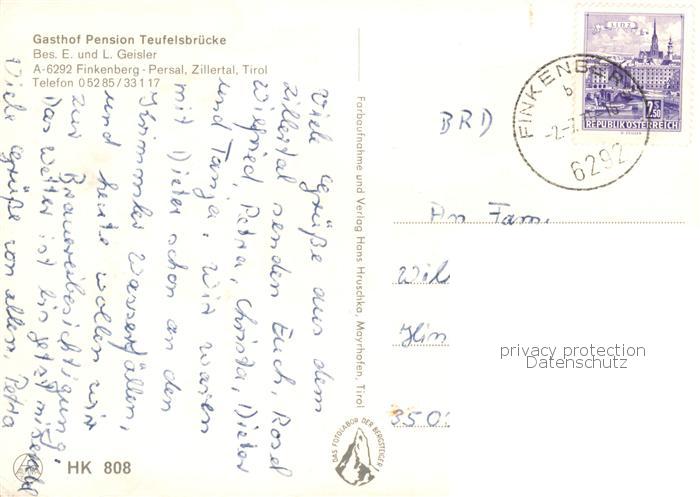 Gasthof Pension Teufelsbrücke
Bes. E. und L. Geisler
A-6292 Finkenberg - Persal, Zillertal, Tirol
Telefon 0 52 85 / 33 1 17
Viele Grüße aus dem
Zillertal senden Euch, Rosel
Wilfried, Petra, Christa, Dieter
und Tanja. Wir waren
mit Dieter schon an den
Krimmler Wasserfällen,
und heute wollen wir
zur Brauereibesichtigung.
Das Wetter ist bis jetzt
Viele Grüße von allen, Petra
HK 808
Farbaufnahme und Verlag Hans Hruschka, Mayrhofen, Tirol
DAS FOTOLABOR DER BERGSTEIGER
LINZ
2.50
REPUBLIK ÖSTERREICH
FINKENBERG
6292
BRD
An Fam.
Wil
850
privacy protection
Datenschutz